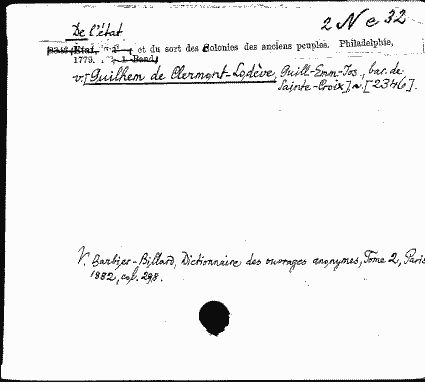 2 N e 32
De l'état
et du sort des Colonies des anciens peuples. Philadelphie,
1779. 1 Band,
v. [Guilhem de Clermont-Lodève, Guill.-Emm.-Jos., bar. de
Sainte-Croix] ~ [2346].
V. Barbier-Billard, Dictionnaire des ouvrages anonymes, Tome 2, Paris
1882, col. 298.